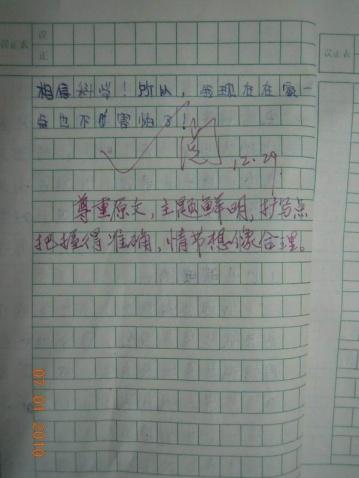 相信科学！所以，我现在在家一
点也不害怕了！
阅
12.29
尊重原文，主题鲜明，扩写点
把握得准确，情节想像合理。
07 01 2010